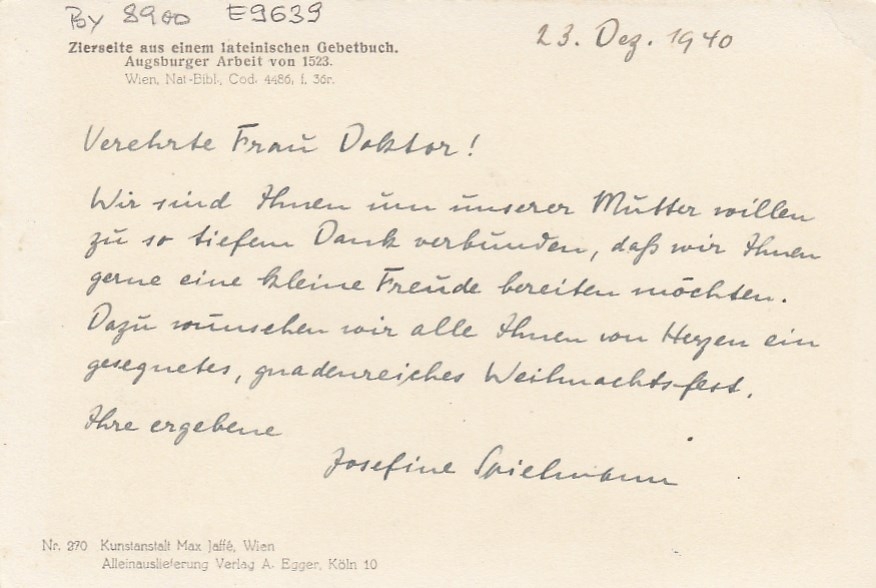 By 8900 E9639
Zierseite aus einem lateinischen Gebetbuch.
Augsburger Arbeit von 1523.
Wien, Nat.-Bibl., Cod. 4486, f. 36r.
23. Dez. 1940
Verehrte Frau Doktor!
Wir sind Ihnen um unserer Mutter willen
zu so tiefem Dank verbunden, daß wir Ihnen
gerne eine kleine Freude bereiten möchten.
Dazu wünschen wir alle Ihnen von Herzen ein
gesegnetes, gnadenreiches Weihnachtsfest.
Ihre ergebene
Josefine Spielmann
Nr. 270 Kunstanstalt Max Jaffé, Wien
Alleinauslieferung Verlag A. Egger, Köln 10